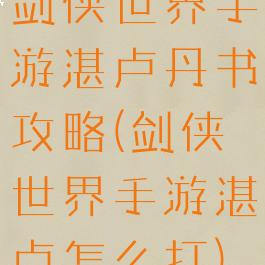 剑侠世界手
游湛卢丹书
攻略(剑侠
世界手游湛
卢怎么打)